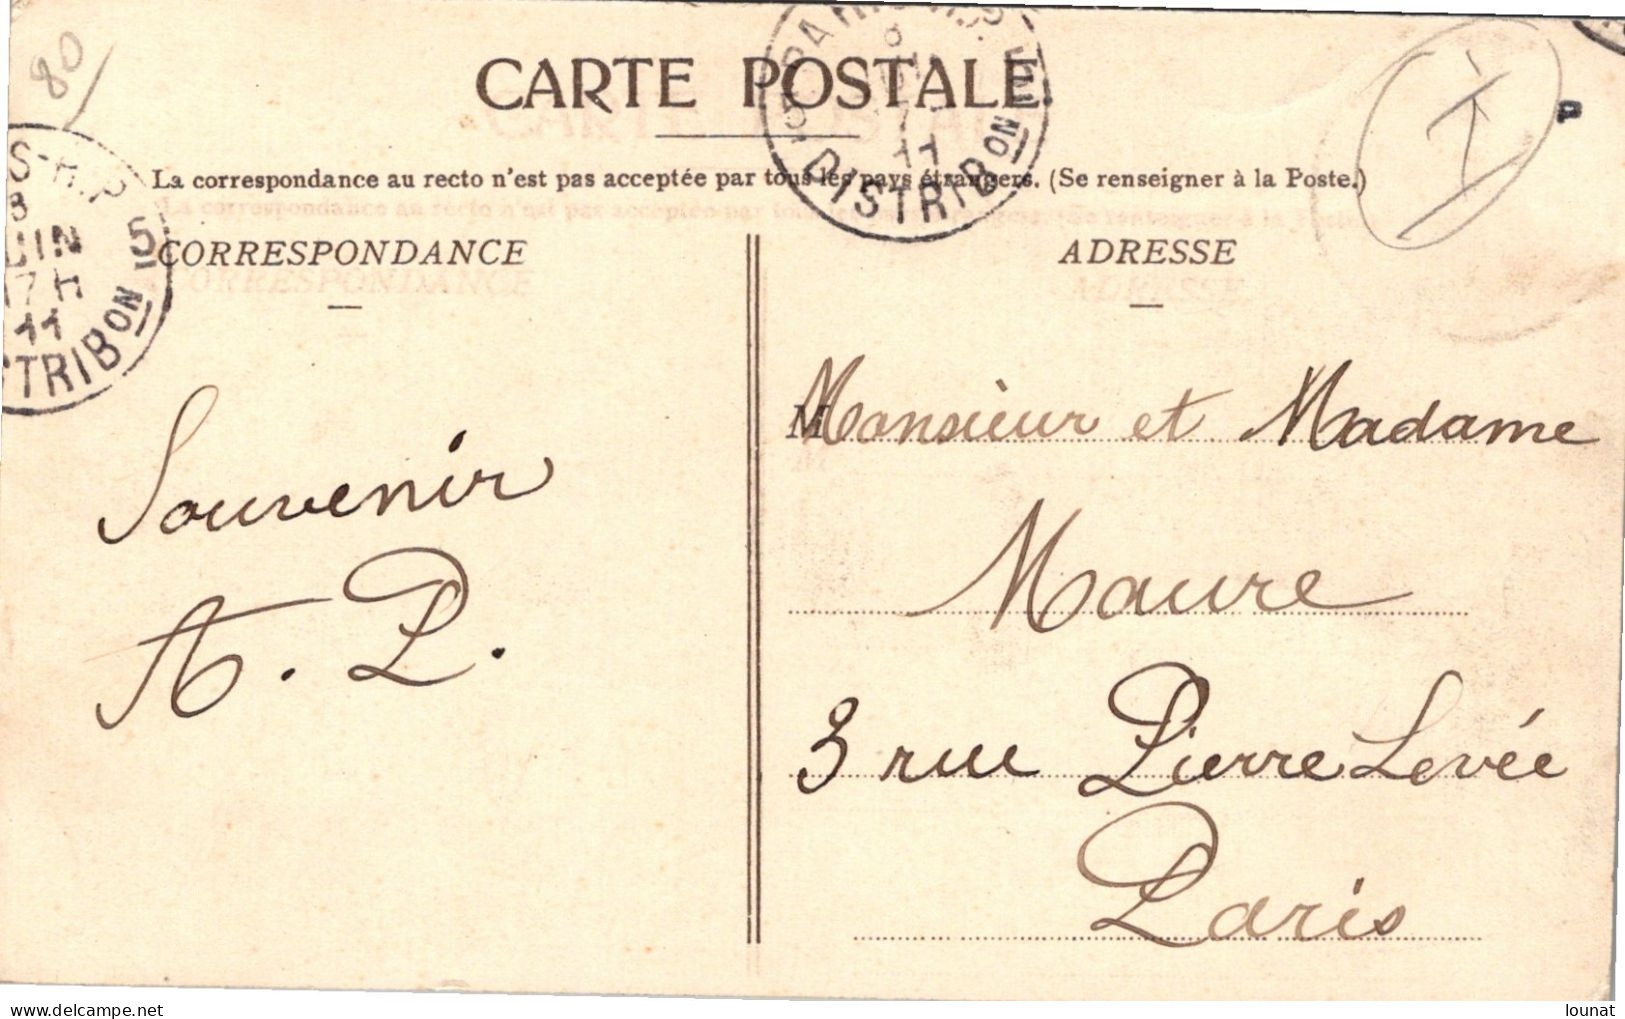 80
CARTE POSTALE
La correspondance au recto n'est pas acceptée par tous les pays étrangers. (Se renseigner à la Poste.)
P
DISTRIBON
11
S-R.P
8
JUIN
17 H
11
5
TRIBON
CORRESPONDANCE
ADRESSE
M
Monsieur et Madame
Maure
3 rue Pierre Levée
Paris
Souvenir
A. P.
lounat